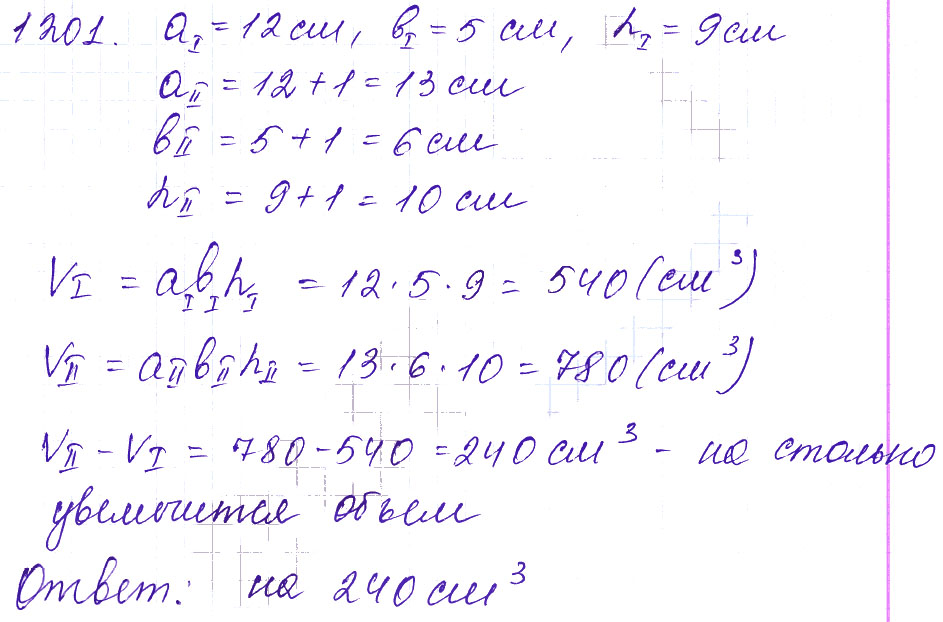 1201. a_I = 12 см, b_I = 5 см, h_I = 9 см
a_II = 12 + 1 = 13 см
b_II = 5 + 1 = 6 см
h_II = 9 + 1 = 10 см
V_I = a_I b_I h_I = 12 · 5 · 9 = 540 (см³)
V_II = a_II b_II h_II = 13 · 6 · 10 = 780 (см³)
V_II - V_I = 780 - 540 = 240 см³ - на столько
увеличится объем
Ответ: на 240 см³